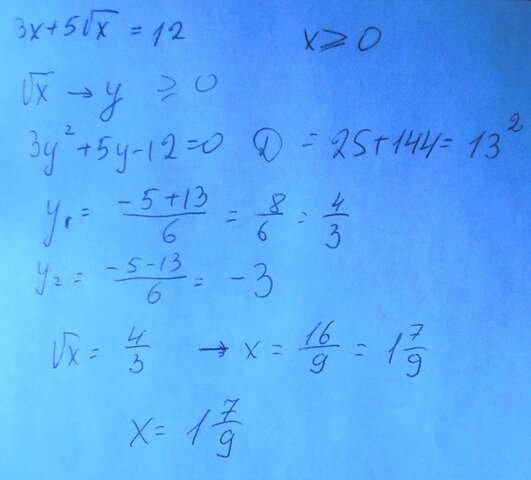 3x+5√x = 12 x ≥ 0
√x → y ≥ 0
3y²+5y-12=0 D = 25+144= 13²
y₁ = (-5+13)/6 = 8/6 = 4/3
y₂ = (-5-13)/6 = -3
√x = 4/3 → x = 16/9 = 1 7/9
x = 1 7/9